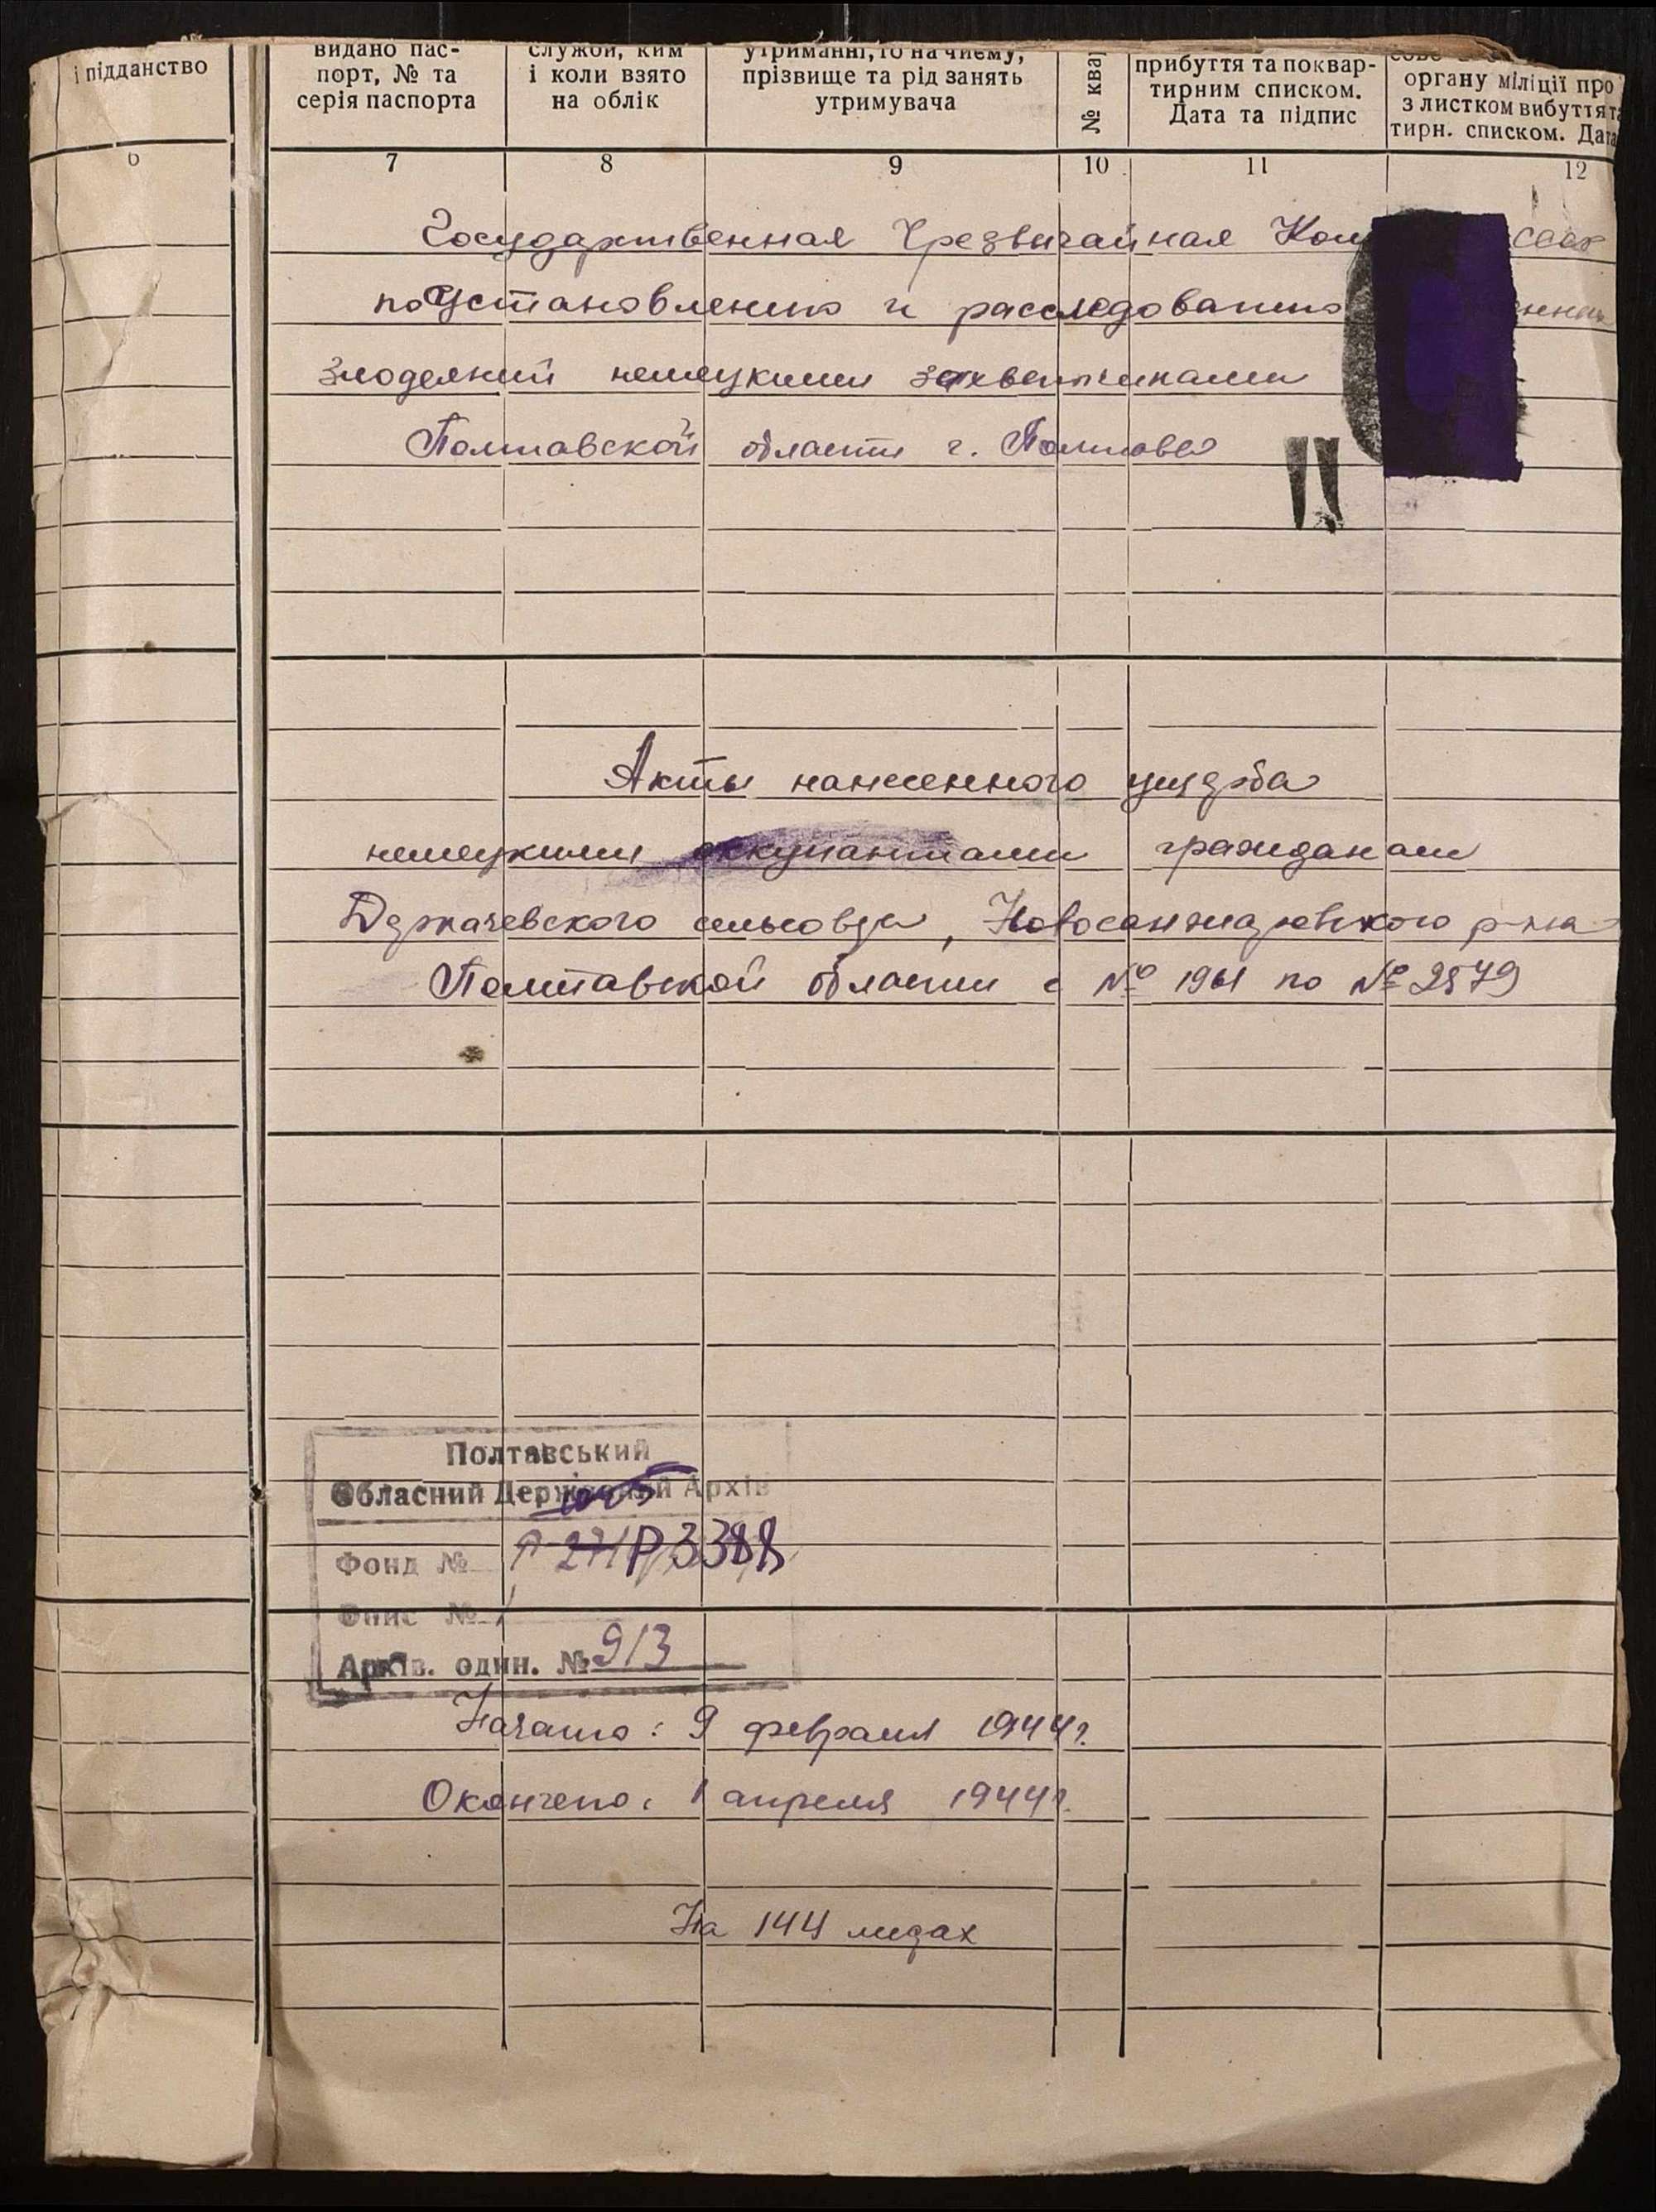 і підданство
видано пас-
порт, № та
серія паспорта
службі, ким
і коли взято
на облік
утриманні, то на чиєму,
прізвище та рід занять
утримувача
№ квар
прибуття та поквар-
тирним списком.
Дата та підпис
органу міліції про
з листком вибуття та
тирн. списком. Дата
6 7 8 9 10 11 12
Государственная Чрезвычайная Ком
по установлению и расследованию
злодеяний немецкими захватчиками
Полтавской области г. Полтава
Акты нанесенного ущерба
немецкими оккупантами гражданам
Держачевского сельсовда, Новосанжаровского р-на
Полтавской области с № 1961 по № 2579
Полтавський
Обласний Державний Архів
Фонд № Р 3388
Опис № 1
Архів. один. № 913
Начато: 9 февраля 1944г.
Окончено: 1 апреля 1944г.
На 144 лидах